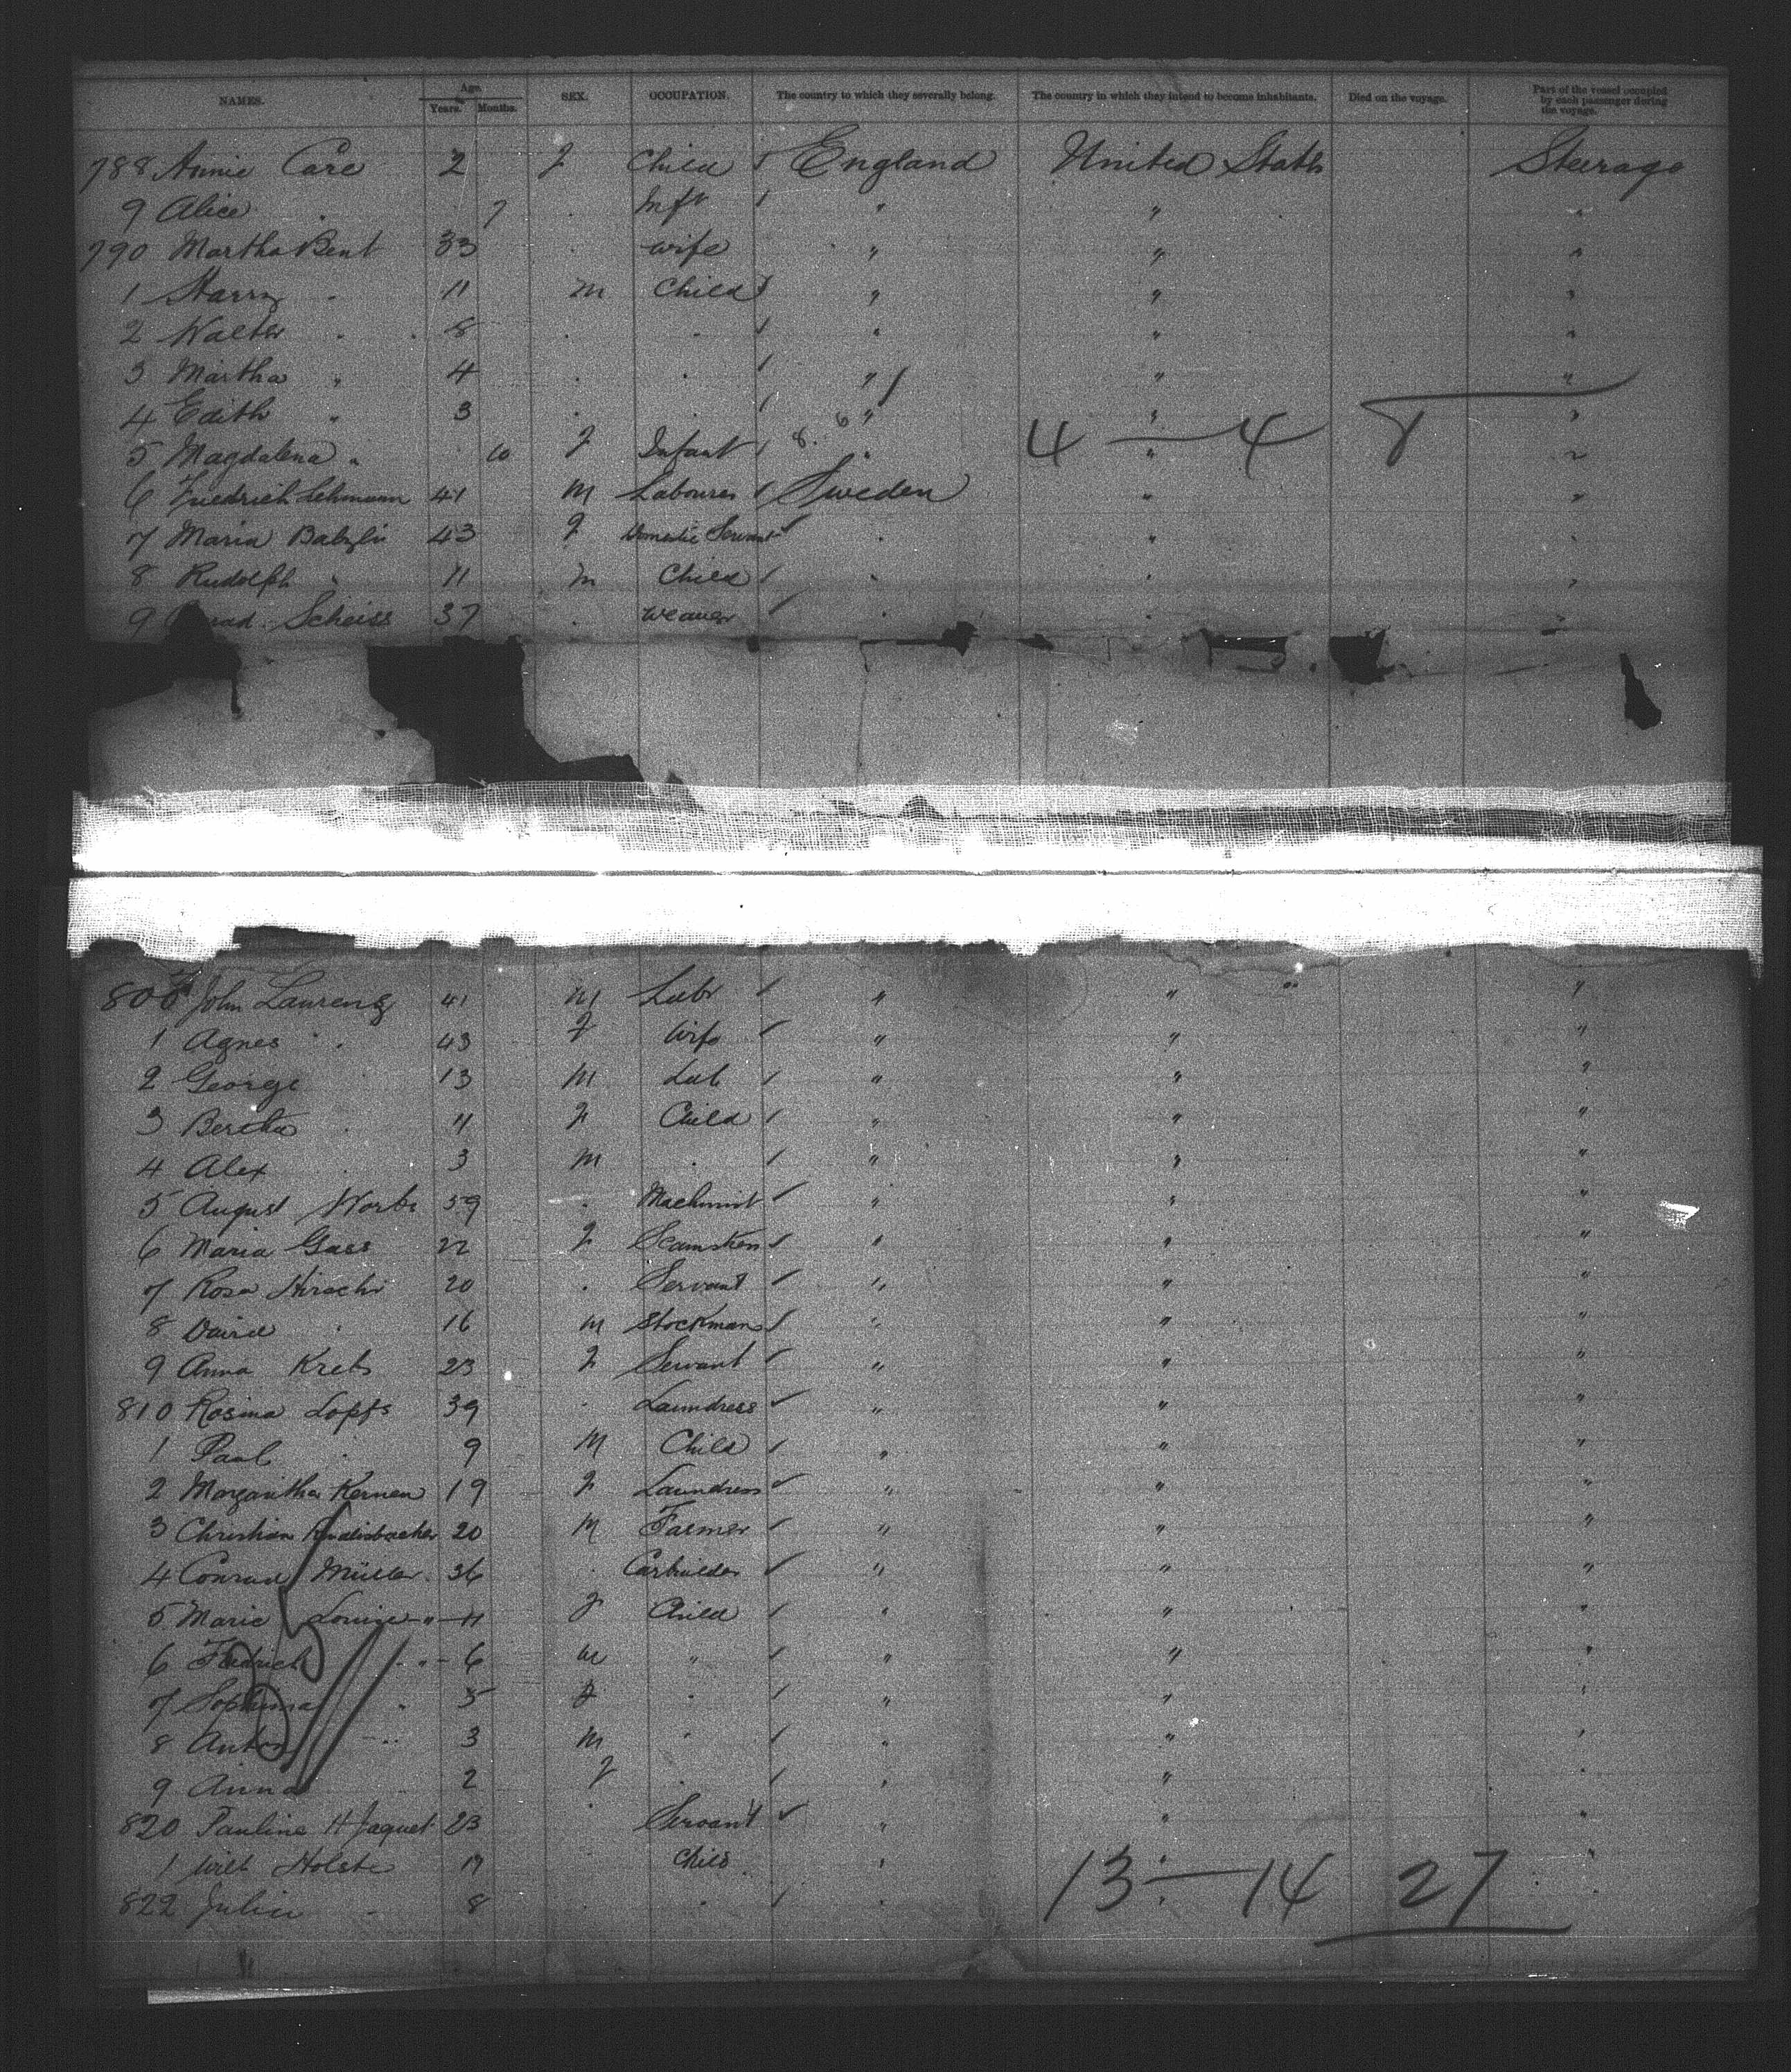 NAMES. Age. Years. Months. SEX. OCCUPATION. The country to which they severally belong. The country in which they intend to become inhabitants. Died on the voyage. Part of the vessel occupied by each passenger during the voyage.
788 Annie Care 2 F Child England United States Steerage
9 Alice 7 Inft " " "
790 Martha Bent 33 wife " " "
1 Harry 11 M Child " " "
2 Walter 8 " " "
3 Martha " 4 " " "
4 Edith " 3 " " "
5 Magdalena " 10 F Infant " " 4 — 4 8
6 Friedrich Lehmann 41 M Labourer Sweden " "
7 Maria 43 F Domestic Servant " "
8 Rudolph " 11 M Child " "
9 Scheiss 37 weaver
800 John Laurenz 41 M Labr " " "
1 Agnes 43 F Wife " " "
2 George 13 M Lab " " "
3 Bertha 11 F Child " " "
4 Alex 3 M " " "
5 August 59 Machinist " " "
6 Maria Gass 22 F Seamstress " " "
7 Rosa Hirschi 20 Servant " " "
8 David 16 M Stockman " " "
9 Anna Krebs 23 F Servant " " "
810 Rosina 39 Laundress " " "
1 Paul 9 M Child " " "
2 Margaritha Kernen 19 F Laundress " " "
3 Christian 20 M Farmer " " "
4 Conrad Müller 36 Carbuilder " " "
5 Marie Louise " 11 F Child " " "
6 Fredrich " 6 M " " " "
7 5 F " " "
8 Anton " 3 M " " "
9 Anna 2 F " " "
820 Pauline H Jaquet 23 Servant " " "
1 Holste Child " "
822 8 13 — 14 27